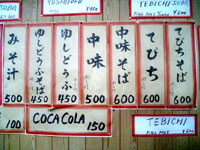 SOBA
YUSHIDOFU
¥450
TEBICHI SOBA
PIG FEET
¥600
てびちそば
600
てびち
600
中味そば
600
中味
500
ゆしどうふ
450
ゆしどうふそば
450
みそ汁
500
100
COCA COLA
150
TEBICHI
PIG FEET
¥600